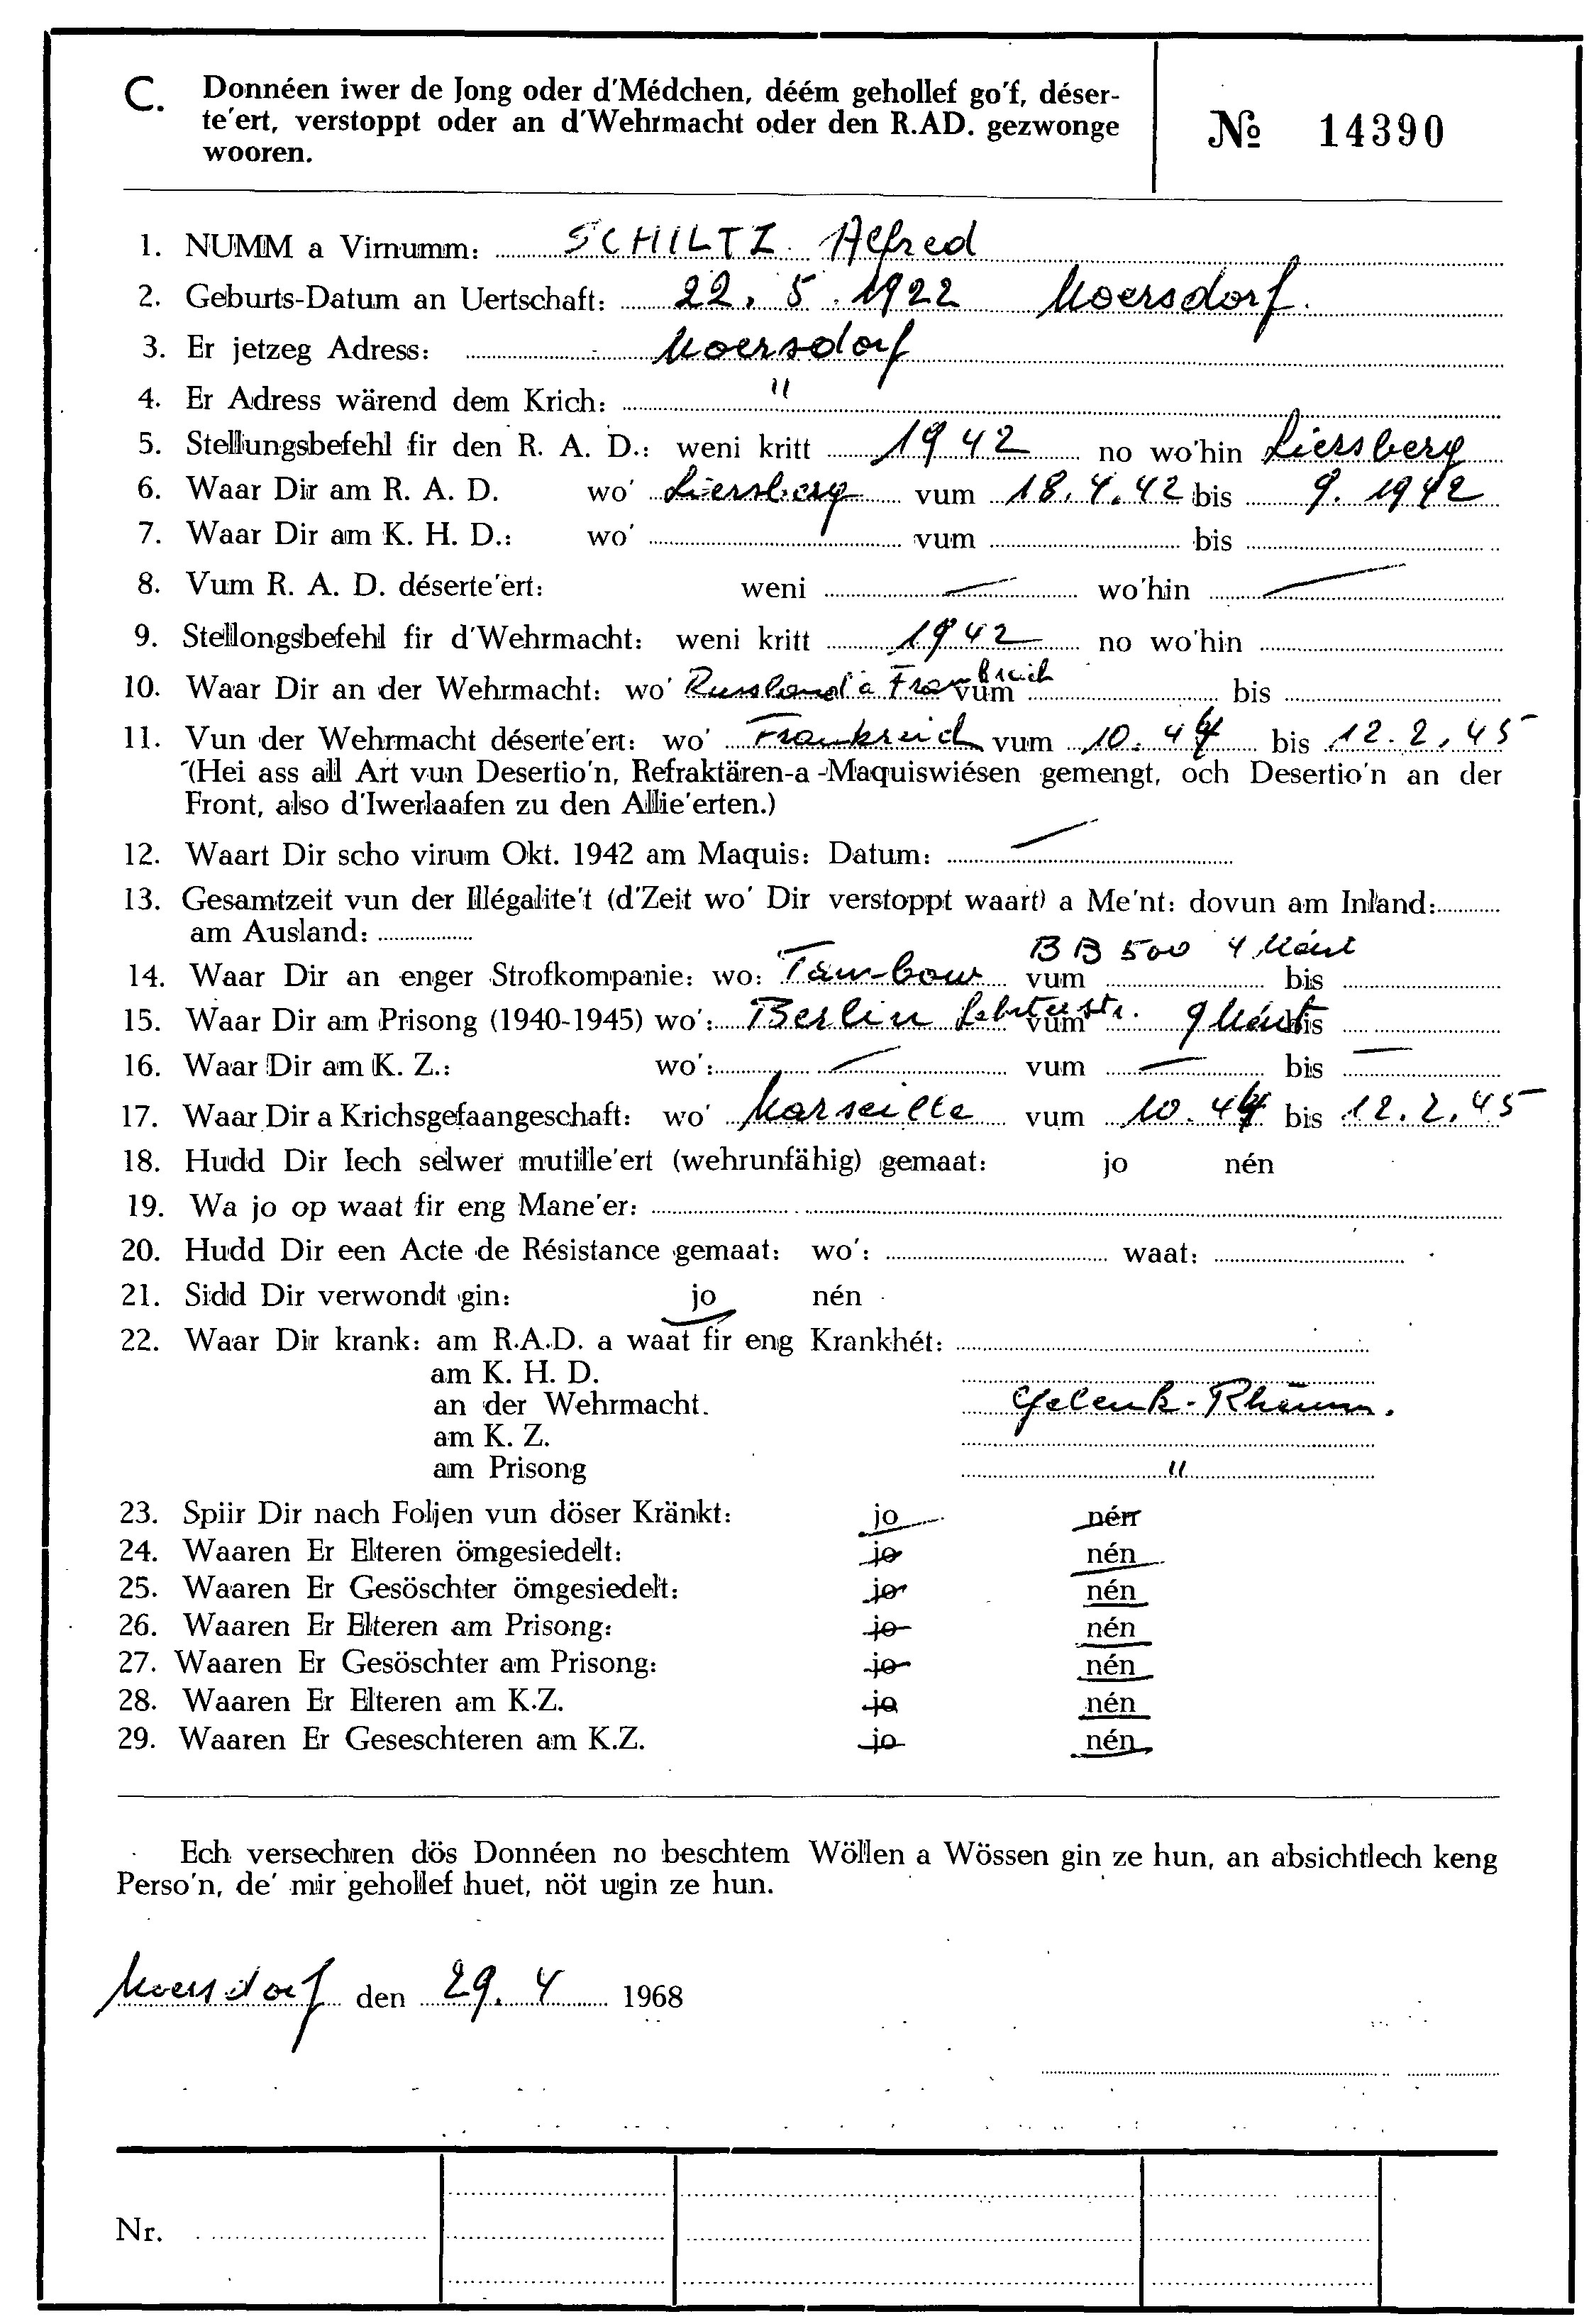 C. Donnéen iwer de Jong oder d'Médchen, déém gehollef go'f, déser-
te'ert, verstoppt oder an d'Wehrmacht oder den R.AD. gezwonge
wooren.
№ 14390
1. NUMM a Virnumm: SCHILTZ Alfred
2. Geburts-Datum an Uertschaft: 22. 5. 1922 Moersdorf.
3. Er jetzeg Adress: Moersdorf
4. Er Adress wärend dem Krich: "
5. Stellungsbefehl fir den R. A. D.: weni kritt 1942 no wo'hin Liersberg
6. Waar Dir am R. A. D. wo' Liersberg vum 18.4.42 bis 9. 1942
7. Waar Dir am K. H. D.: wo' vum bis
8. Vum R. A. D. déserte'ert: weni — wo'hin —
9. Stellongsbefehl fir d'Wehrmacht: weni kritt 1942 no wo'hin
10. Waar Dir an der Wehrmacht: wo' Russland a Frankreich vum bis
11. Vun der Wehrmacht déserte'ert: wo' Frankreich vum 10. 44 bis 12. 2. 45
(Hei ass all Art vun Desertio'n, Refraktären-a -Maquiswiésen gemengt, och Desertio'n an der
Front, also d'Iwerlaafen zu den Allie'erten.)
12. Waart Dir scho virum Okt. 1942 am Maquis: Datum: —
13. Gesamtzeit vun der Illégalite't (d'Zeit wo' Dir verstoppt waart) a Me'nt: dovun am Inland:
am Ausland:
14. Waar Dir an enger Strofkompanie: wo: Tambow BB 500 4 Méint vum bis
15. Waar Dir am Prisong (1940-1945) wo': Berlin Lehrterstr. vum 9 Méint bis
16. Waar Dir am K. Z.: wo': — vum — bis —
17. Waar Dir a Krichsgefaangeschaft: wo' Marseille vum 10. 44 bis 12. 2. 45
18. Hudd Dir Iech selwer mutille'ert (wehrunfähig) gemaat: jo nén
19. Wa jo op waat fir eng Mane'er:
20. Hudd Dir een Acte de Résistance gemaat: wo': waat:
21. Sidd Dir verwondt gin: jo nén
22. Waar Dir krank: am R.A.D. a waat fir eng Krankhét:
am K. H. D.
an der Wehrmacht. Gelenk-Rheum.
am K. Z.
am Prisong "
23. Spiir Dir nach Foljen vun döser Kränkt: jo nén
24. Waaren Er Elteren ömgesiedelt: jo nén
25. Waaren Er Gesöschter ömgesiedelt: jo nén
26. Waaren Er Elteren am Prisong: jo nén
27. Waaren Er Gesöschter am Prisong: jo nén
28. Waaren Er Elteren am K.Z. jo nén
29. Waaren Er Geseschteren am K.Z. jo nén
Ech versechren dös Donnéen no beschtem Wöllen a Wössen gin ze hun, an absichtlech keng
Perso'n, de' mir gehollef huet, nöt ugin ze hun.
Moersdorf den 29. 4 1968
Nr.